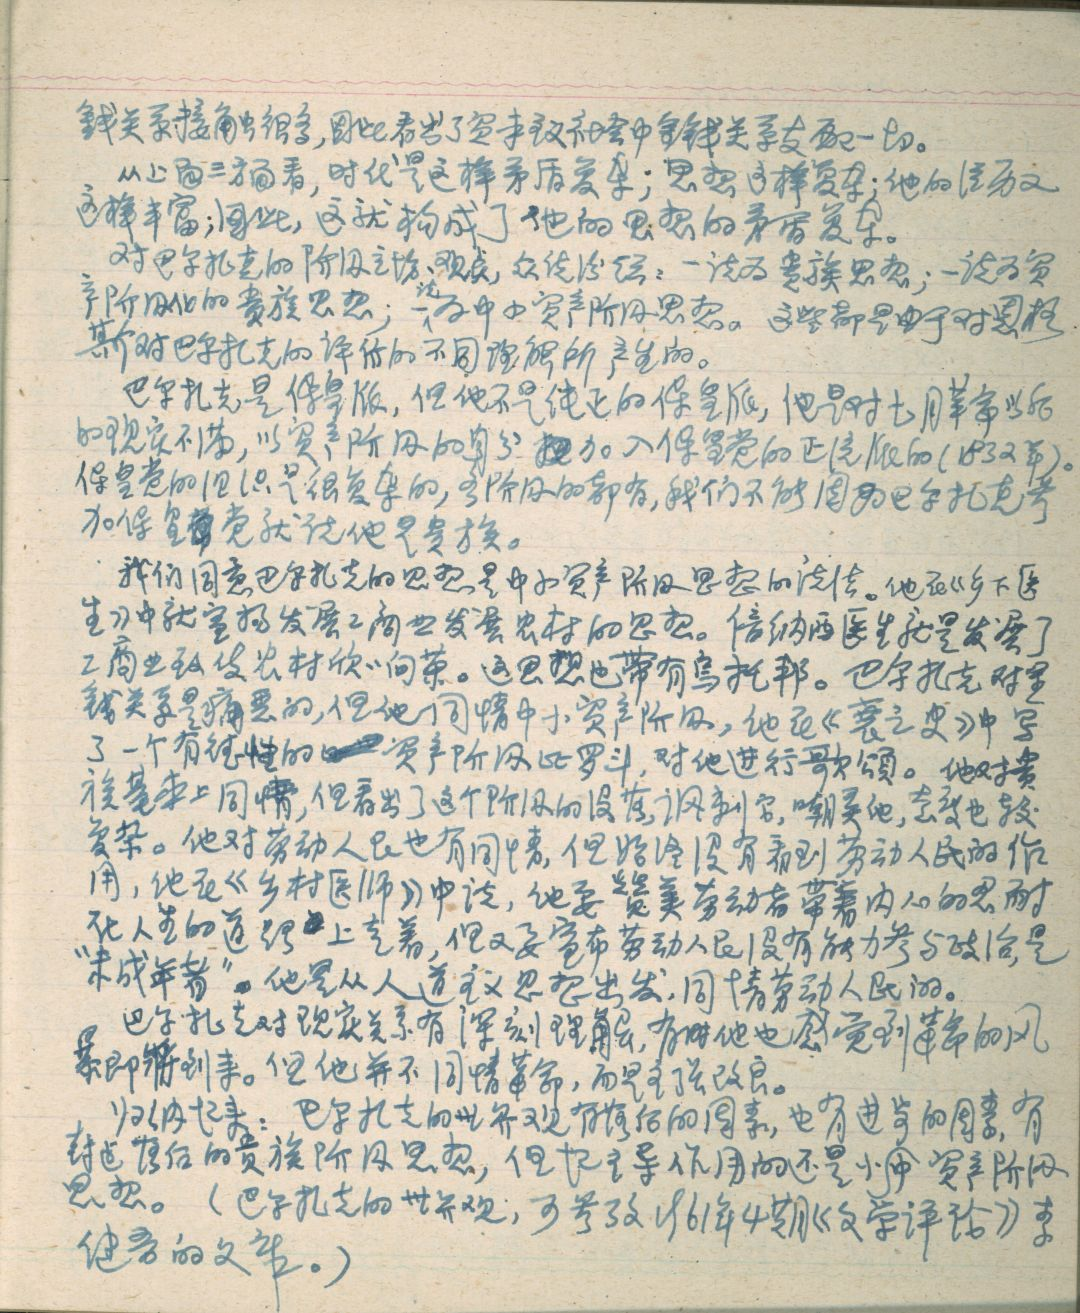 钱关系接触很多,因此看出了资本主义社会中金钱关系支配一切。
从上面三方面看,时代是这样矛盾复杂;思想这样复杂;他的经历又
这样丰富;因此,这就构成了他的思想的矛盾复杂。
对巴尔扎克的阶级立场、观点,众说纷纭:一说为贵族思想;一说为资
产阶级化的贵族思想;一说为中小资产阶级思想。这些都是由于对恩格
斯对巴尔扎克的评价的不同理解所产生的。
巴尔扎克是保皇派,但他不是纯正的保皇派,他是对七月革命以后
的现实不满,以资产阶级的身分加入保皇党的正统派的(1832年)。
保皇党的组织是很复杂的,各阶级的都有,我们不能因为巴尔扎克参
加保皇党就说他是贵族。
我们同意巴尔扎克的思想是中小资产阶级思想的说法。他在《乡下医
生》中就宣扬发展工商业发展农村的思想。倍纳西医生就是发展了
工商业致使农村欣欣向荣。这思想也带有乌托邦。巴尔扎克对金
钱关系是痛恶的,但他同情中小资产阶级,他在《衰亡史》中写
了一个有德性的资产阶级比罗斗,对他进行歌颂。他对贵
族基本上同情,但看出了这个阶级的没落,讽刺它,嘲弄他,态度也较
复杂。他对劳动人民也有同情,但始终没有看到劳动人民的作
用,他在《乡村医师》中说,他要赞美劳动者带着内心的忍耐
在人生的道路上走着,但又要宣布劳动人民没有能力参与政治,是
“未成年者”。他是从人道主义思想出发,同情劳动人民的。
巴尔扎克对现实关系有深刻理解,有时他也感觉到革命的风
暴即将到来。但他并不同情革命,而是主张改良。
归纳起来:巴尔扎克的世界观有落后的因素,也有进步的因素,有
封建落后的贵族阶级思想,但起主导作用的还是小中资产阶级
思想。(巴尔扎克的世界观,可参攷1961年4期《文学评论》李
健吾的文章。)